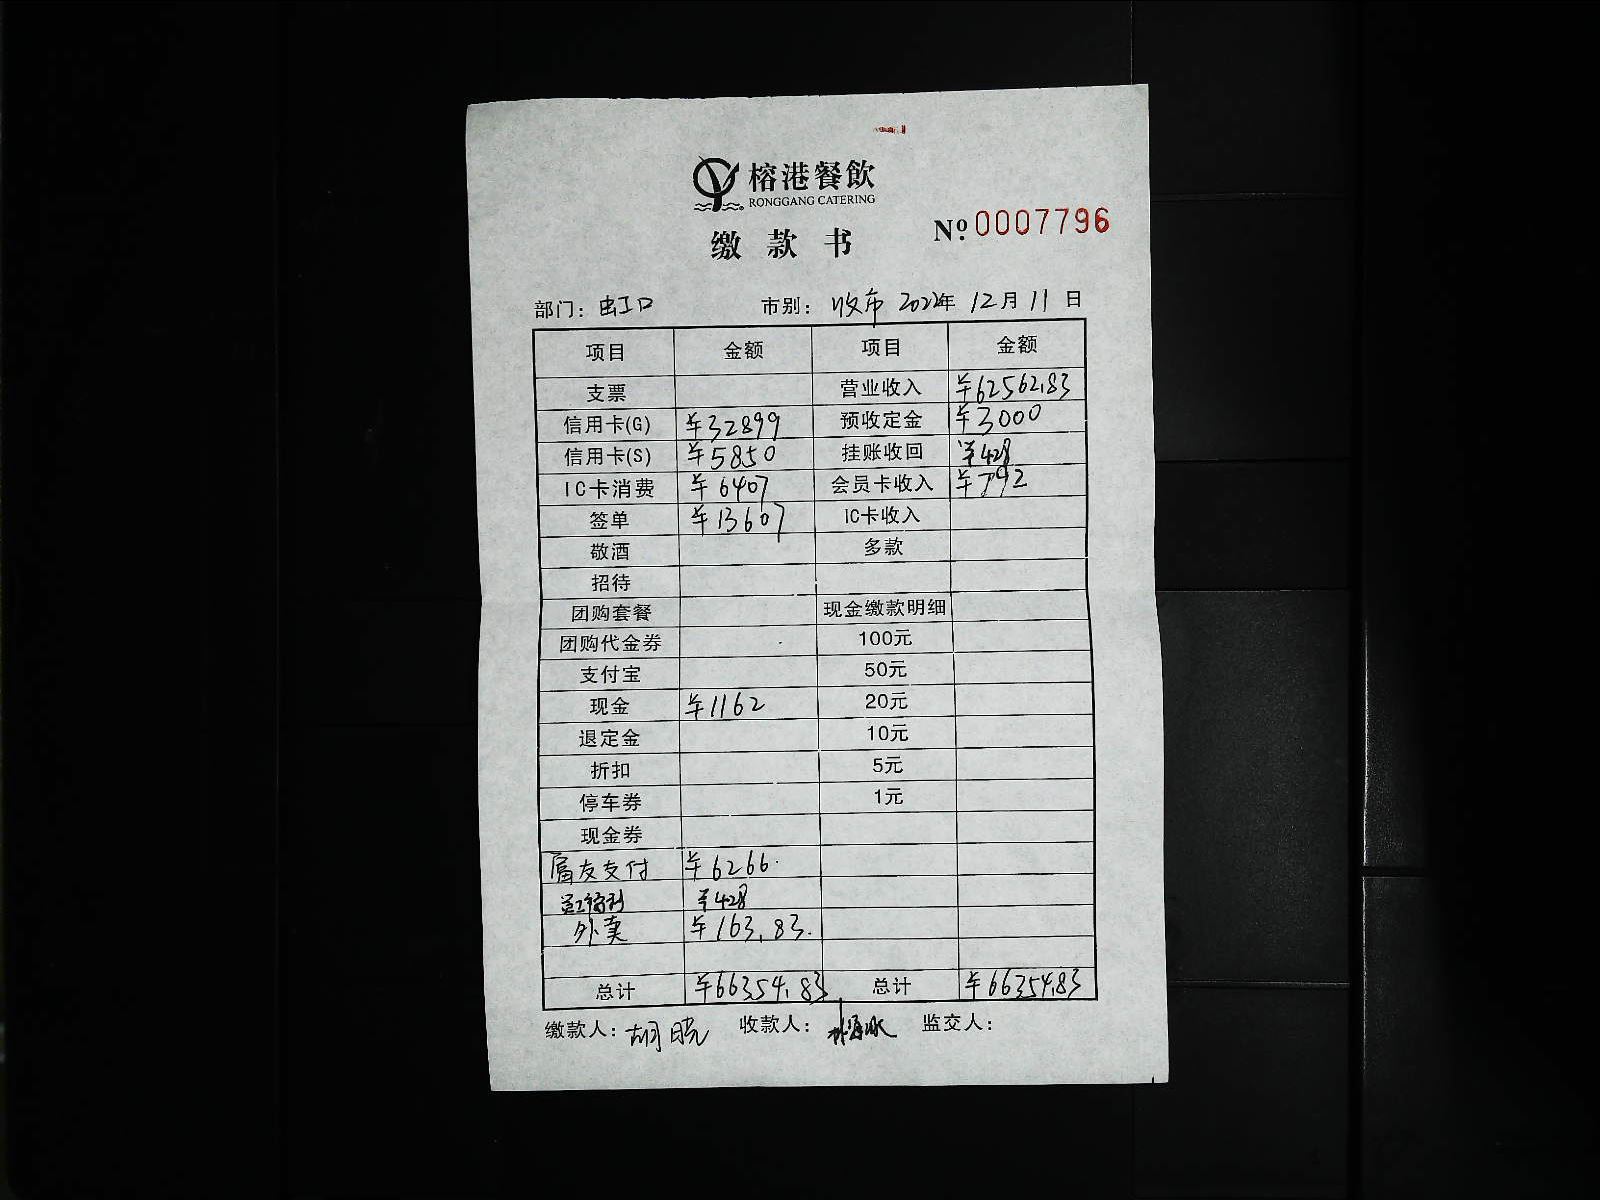 榕港餐飲
RONGGANG CATERING
缴款书 Nº.0007796
部门：虹口 市别：收市 2022年 12月 11日
项目 金额 项目 金额
支票 营业收入 ¥62562.83
信用卡(G) ¥32899 预收定金 ¥3000
信用卡(S) ¥5850 挂账收回 ¥428
IC卡消费 ¥6407 会员卡收入 ¥792
签单 ¥13607 IC卡收入
敬酒 多款
招待
团购套餐 现金缴款明细
团购代金券 100元
支付宝 50元
现金 ¥1162 20元
退定金 10元
折扣 5元
停车券 1元
现金券
富友支付 ¥6266.
员工福利 ¥428
外卖 ¥163.83.
总计 ¥66354.83 总计 ¥66354.83
缴款人：胡晓 收款人： 监交人：